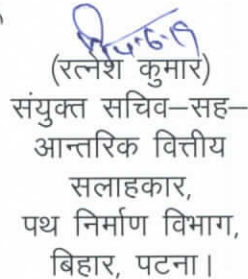 14-6-19
(रत्नेश कुमार)
संयुक्त सचिव–सह–
आन्तरिक वित्तीय
सलाहकार,
पथ निर्माण विभाग,
बिहार, पटना।